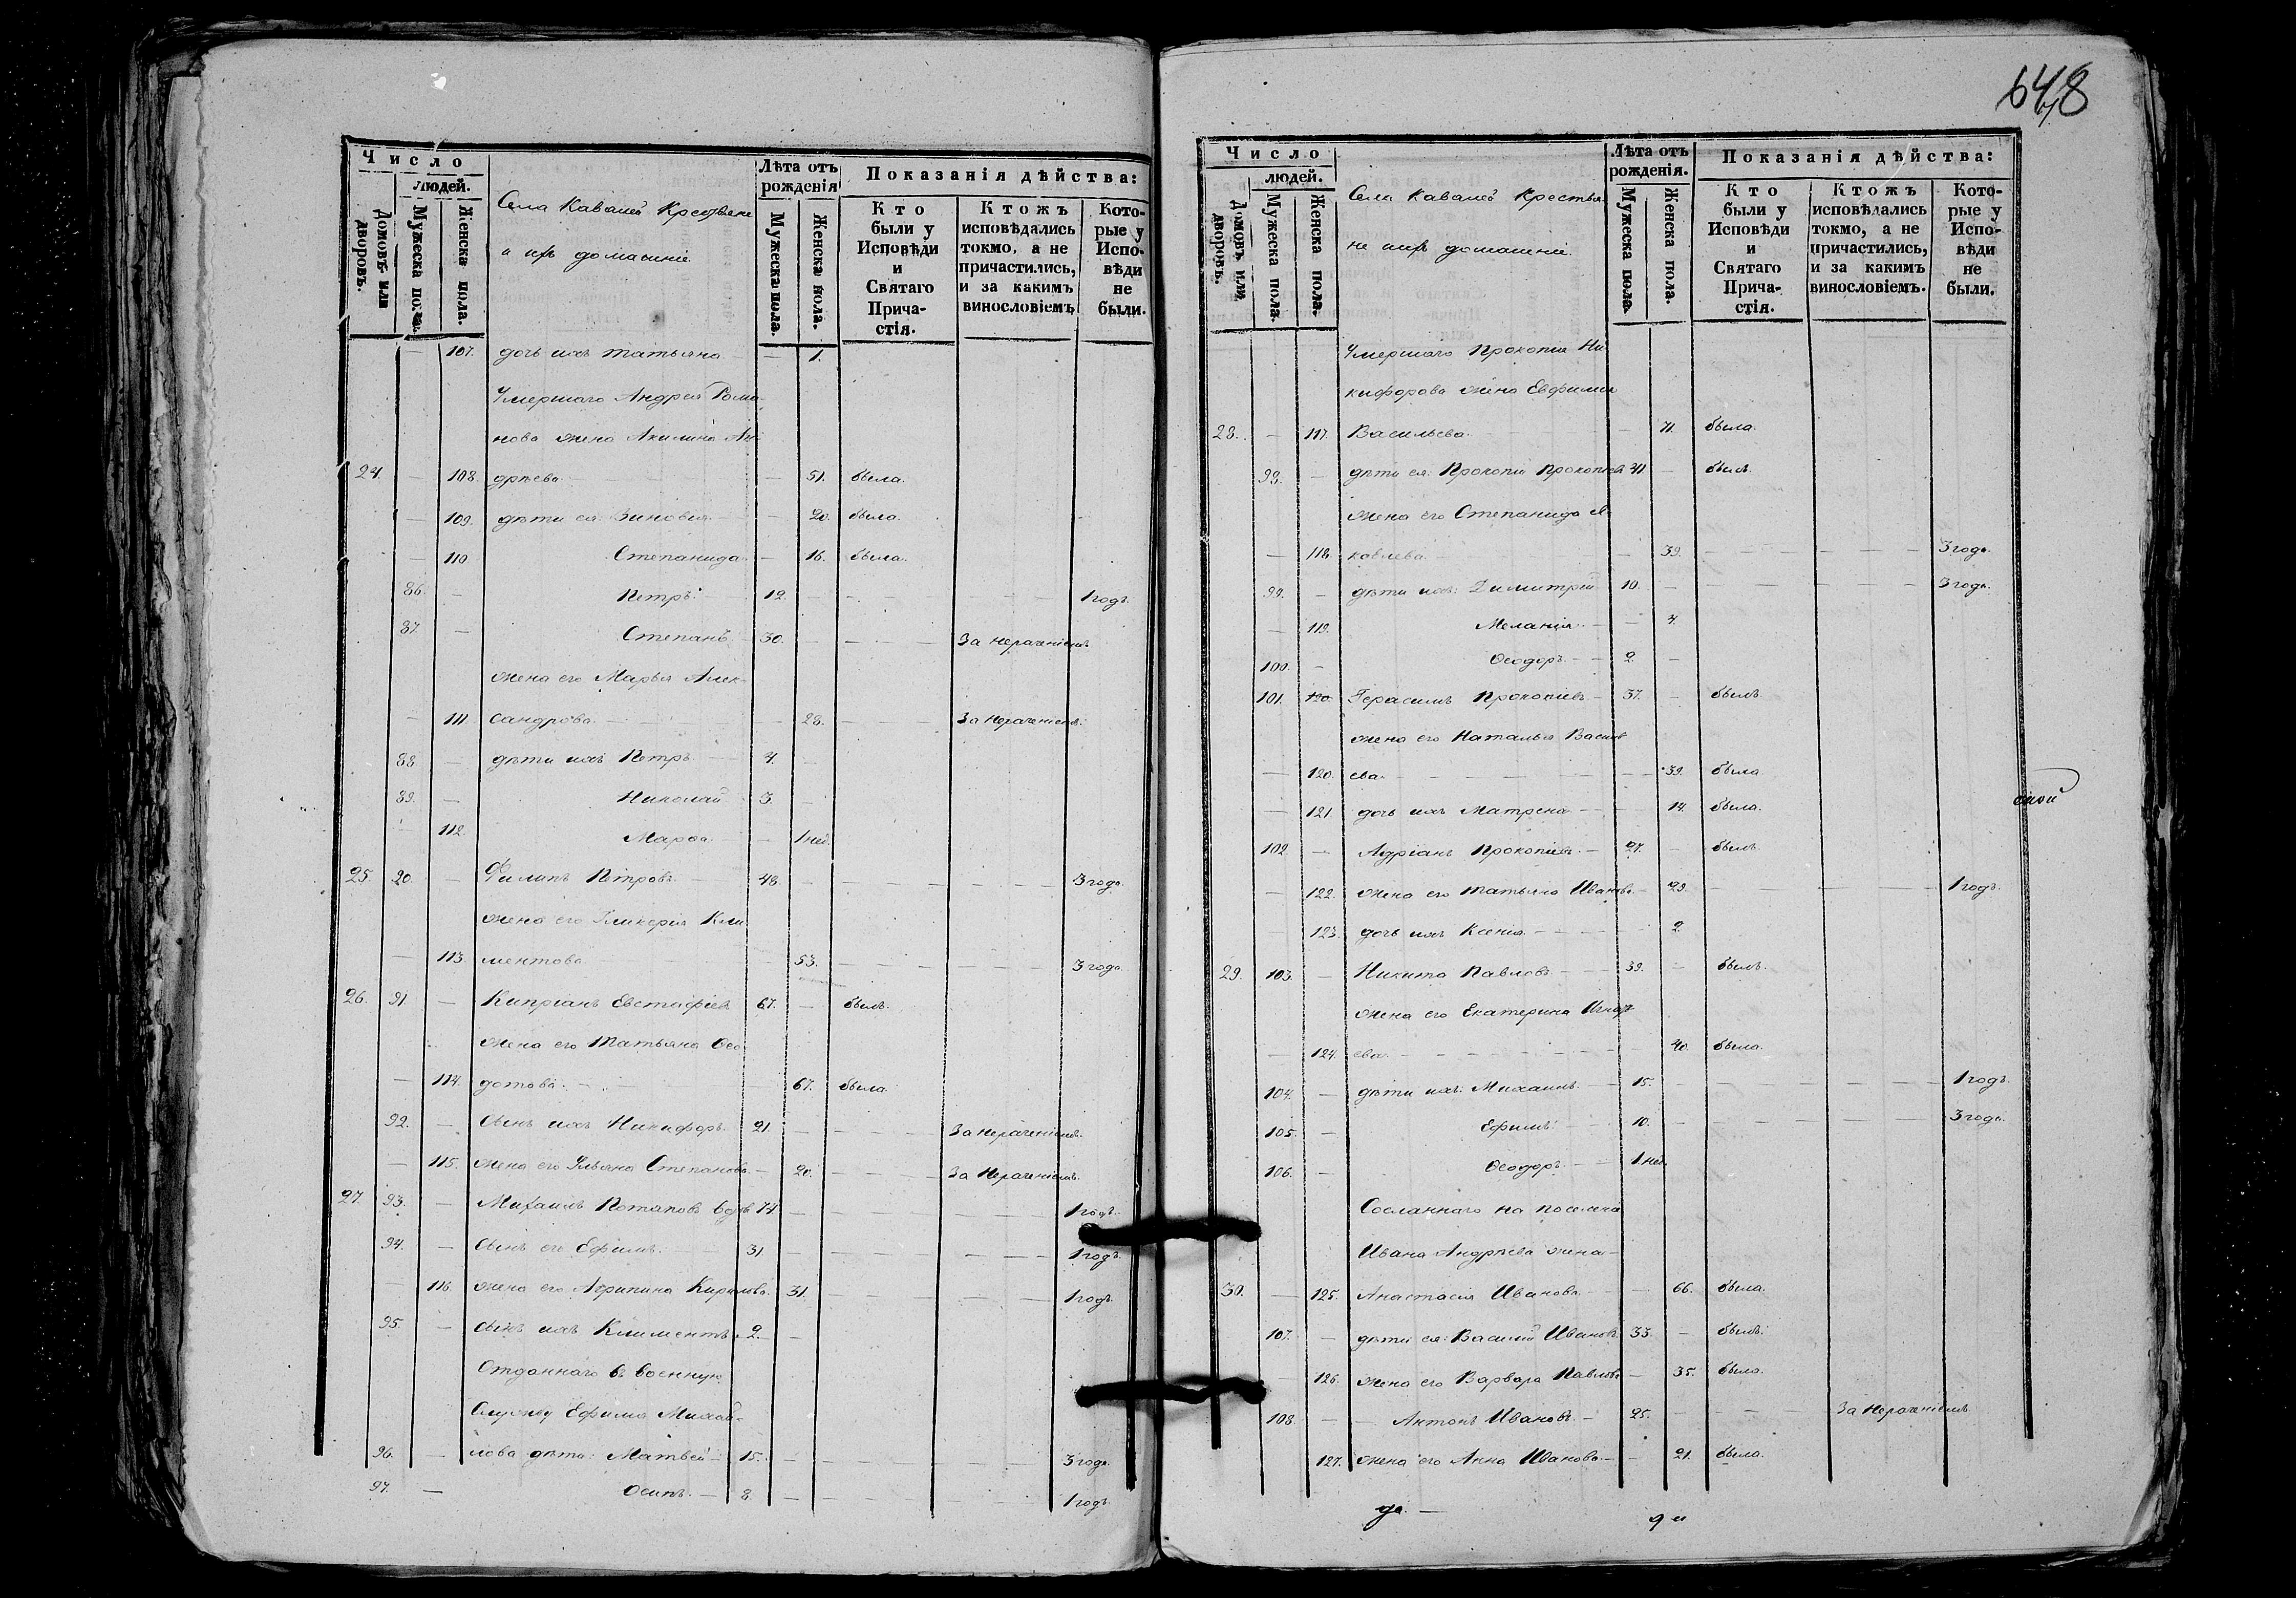 648
Число
людей.
Домовъ или дворовъ.
Мужеска пола.
Женска пола.
Села Кавалей Крестьяне
и ихъ домашніе
Лѣта отъ рожденія
Мужеска пола.
Женска пола.
Показанія дѣйства:
Кто были у Исповѣди и Святаго Причастія.
Ктожъ исповѣдались токмо, а не причастились, и за какимъ винословіемъ
Которые у Исповѣди не были.
— 107. дочь ихъ Татьяна — 1.
Умершаго Андрея Рома-
нова жена Акилина Ан-
24. — 108. дрѣева — 51. была.
— 109. дѣти ея: Зиновия — 20. была.
— 110 Степанида — 16. была.
86. — Петръ 12. — 1 годъ.
87. — Степанъ 30. — За нераченіемъ
жена его Марья Алек-
— 111. сандрова — 28. — За нераченіемъ.
88. — дѣти ихъ Петръ 4. —
89. — Николай 3. —
— 112. Марѳа — 1 нед.
25. 90. — Филипъ Петровъ 48. — 3 года.
жена его Гликерия Кли-
— 113. ментова — 53. — 3 года.
26. 91. — Кипріанъ Евстафіевъ 67. — былъ.
жена его Татьяна Ѳео-
— 114. дотова — 67. была
92. — сынъ ихъ Никифоръ 21. — За нераченіемъ.
— 115. жена его Ульяна Степанова — 20. — За нераченіемъ.
27. 93. — Михаилъ Потаповъ вдовъ 74 — 1 годъ.
94. — сынъ его Ефимъ 31 — 1 годъ.
— 116. жена его Агрипина Кирилова 31. — 1 годъ.
95. — сынъ ихъ Климентъ 2. —
Отданнаго въ военную
службу Ефима Михай-
96. — лова дѣти: Матвей 15. — 3 года.
97. — Осипъ. — 8. — 1 годъ.
Число
людей.
Домовъ или дворовъ.
Мужеска пола.
Женска пола.
Села Кавалей Крестья-
не и ихъ домашніе
Лѣта отъ рожденія.
Мужеска пола.
Женска пола.
Показанія дѣйства:
Кто были у Исповѣди и Святаго Причастія.
Ктожъ исповѣдались токмо, а не причастились, и за какимъ винословіемъ.
Которые у Исповѣди не были.
Умершаго Прокопия Ни-
кифорова жена Евфимия
28. — 117. Васильева — 71. была.
99. — дѣти ея: Прокопи Прокопіевъ 41 — былъ.
жена его Степанида Я-
— 118. ковлева — 39. — 3 года.
99. — дѣти ихъ: Димитрий 10. — 3 года.
— 119. Мелания — 4.
100. — Ѳеодоръ — 2. —
101. 120. Герасимъ Прокопіевъ — 37. — былъ
жена его Наталья Василь-
— 120. ева — 39. была
— 121. дочь ихъ Матрена — 14. была.
102 — Адріанъ Прокопіевъ. — 27. — былъ
— 122. жена его Татьяна Иванова — 29. — 1 годъ.
— 123. дочь ихъ Ксения — 2.
29. 103. — Никита Павловъ — 39. — былъ.
жена его Екатерина Игнать-
— 124. ева — 40. была.
104. — дѣти ихъ: Михаилъ 15. — 1 годъ.
105. — Ефимъ 10. — 3 года.
106. — Ѳеодоръ — 1 нед.
Сосланнаго на поселение
Ивана Андрѣева жена
30. — 125. Анастасия Иванова — 66. была.
107. — дѣти ея: Василий Ивановъ 33. — былъ.
— 126. жена его Варвара Павлова — 35. была.
108. — Антонъ Ивановъ — 25. — За нераченіемъ
127. жена его Анна Иванова — 21. была.